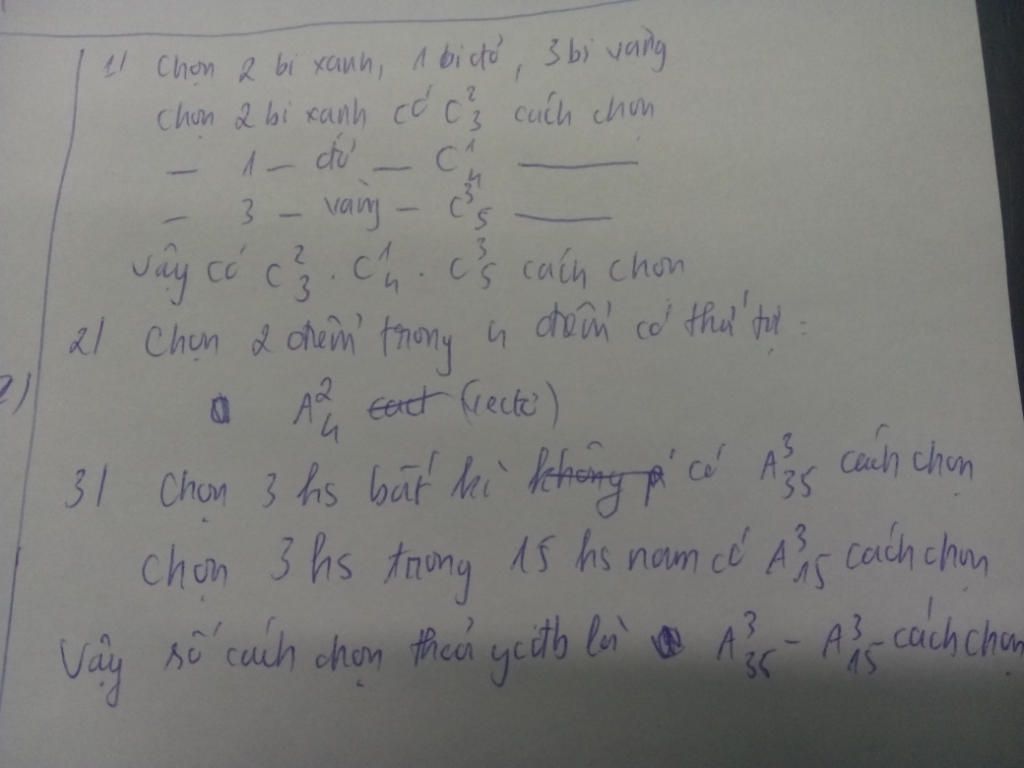 1/ Chọn 2 bi xanh, 1 bi đỏ, 3 bi vàng
chọn 2 bi xanh có C²₃ cách chọn
— 1 — đỏ — C¹₄ ———
— 3 — vàng — C³₅ ———
Vậy có C²₃ . C¹₄ . C³₅ cách chọn
2/ Chọn 2 điểm trong 4 điểm có thứ tự :
2)
A²₄ (vectơ)
3/ Chọn 3 hs bất kì có A³₃₅ cách chọn
Chọn 3 hs trong 15 hs nam có A³₁₅ cách chọn
Vậy số cách chọn thoả ycđb là A³₃₅ - A³₁₅ cách chọn